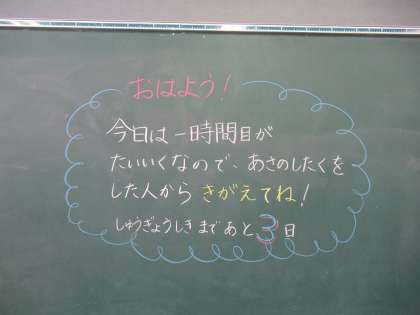 おはよう!
今日は一時間目が
たいいくなので、あさのしたくを
した人から きがえてね!
しゅうぎょうしきまで あと3日